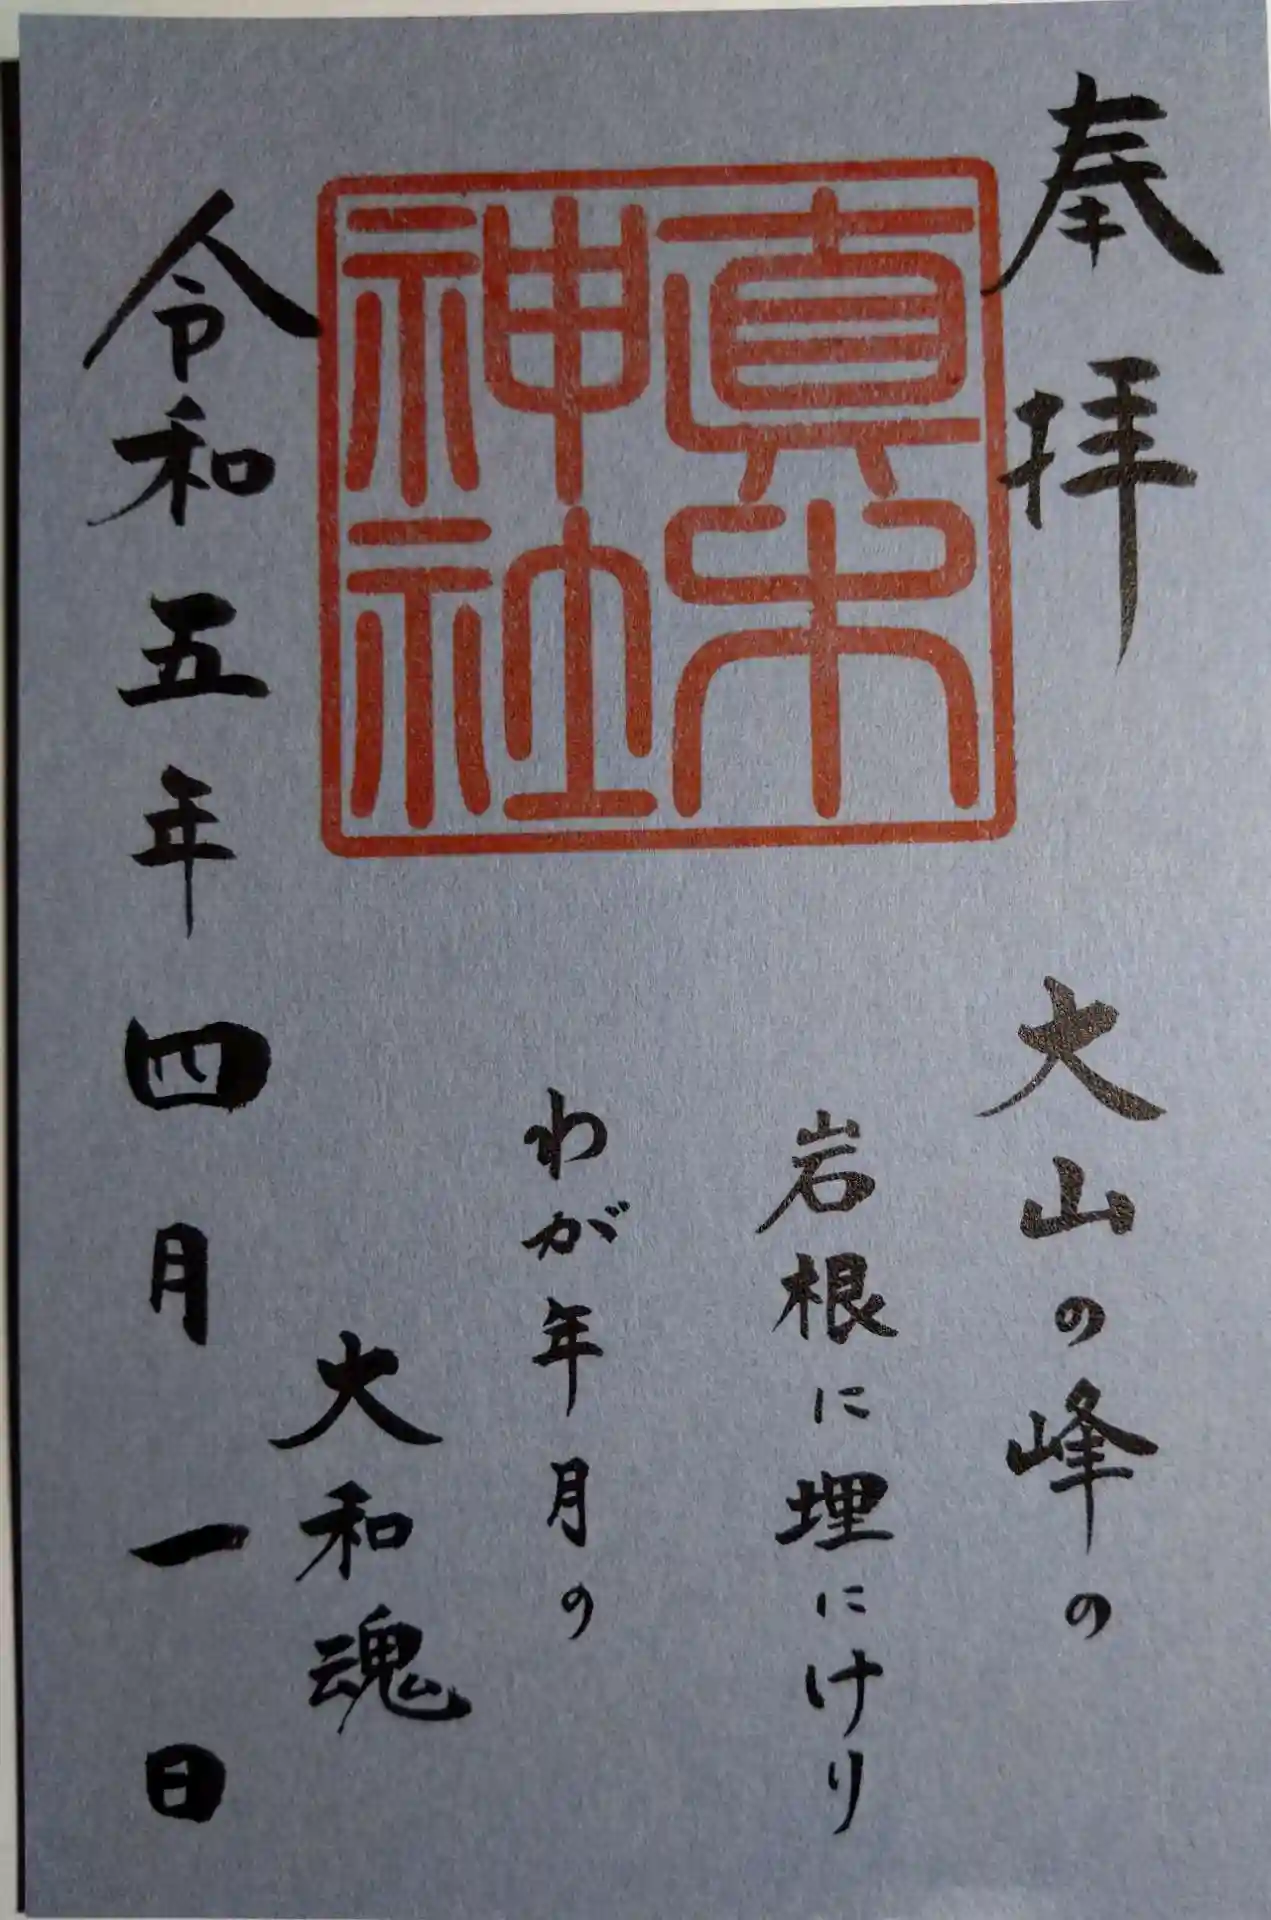 奉拝
真木
神社
大山の峰の
岩根に埋にけり
わが年月の
大和魂
令和五年四月一日